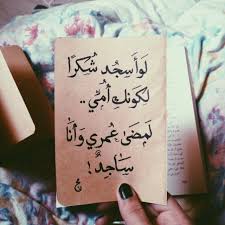 لَوأَسجُد شُكرًا
لكونك أُمّي ..
لَمضىٰ عُمري وَأَنا
سَاجِدٌ !